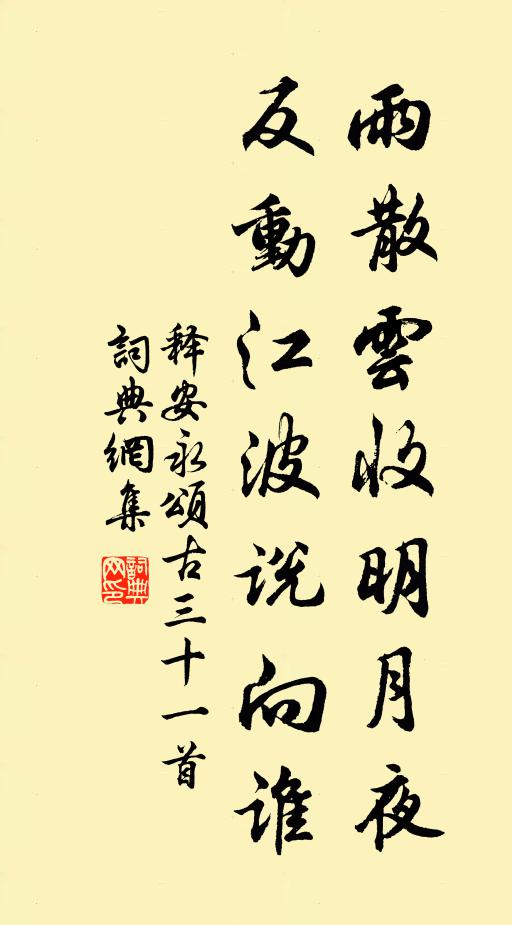 雨散雲收明月夜
反動江波説向誰
释安永頌古三十一首
詞典網集
詞典網印